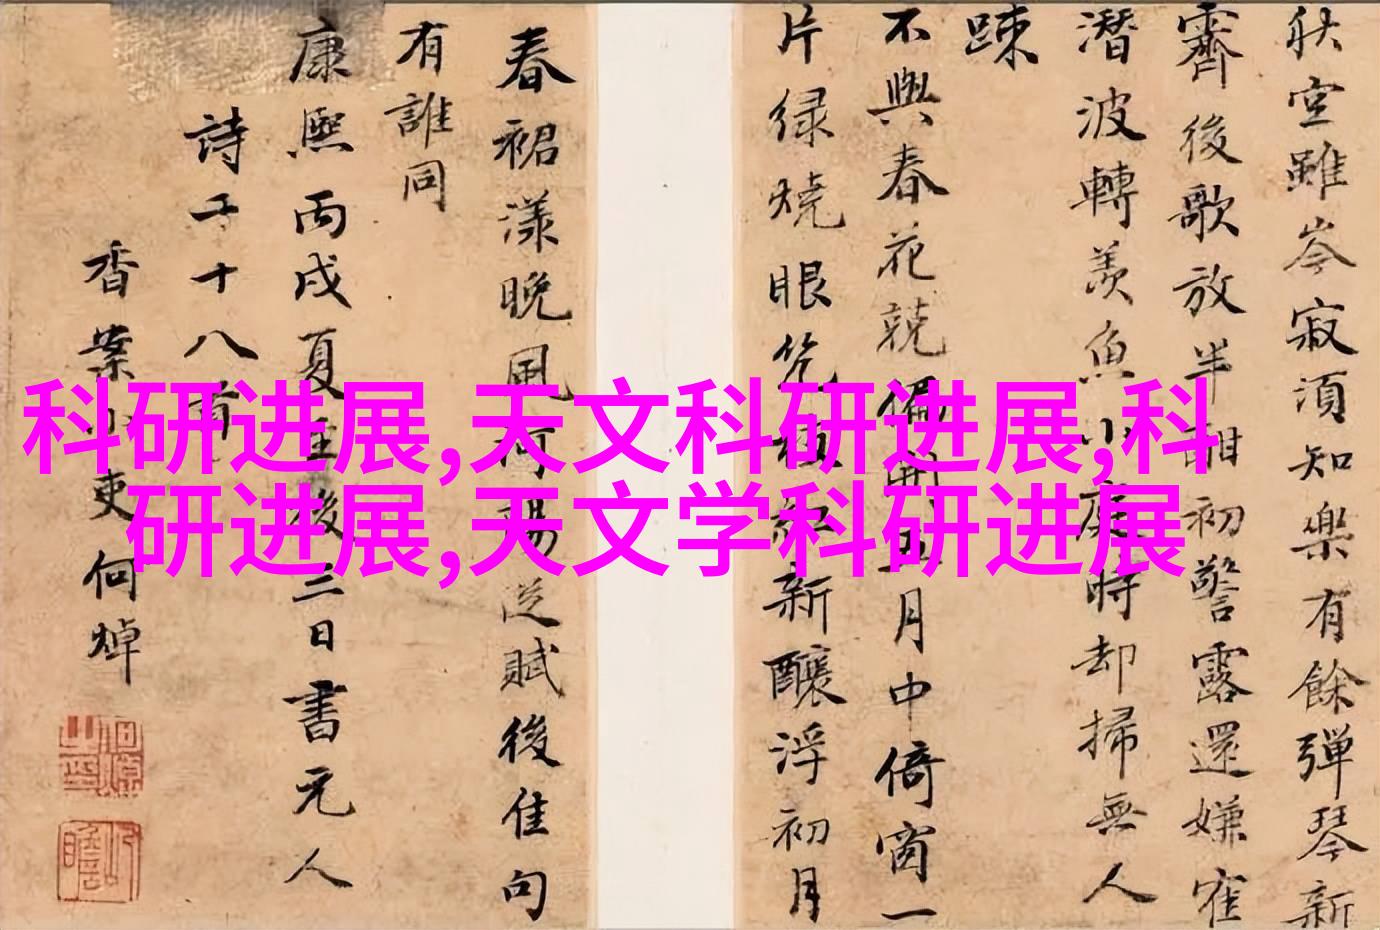 秋空雖岑寂須知樂有餘彈琴新
霽後歌放半酣初警露還嫌寉
潛波轉羨魚小庭時却掃無人
踈
不與春花競偏開五月中倚窗一
片绿燒眼笵枝紅新釀浮初月
春裙漾晚風何湯後佳句
有誰同
康熙丙戌夏至後三日書元人
詩二十八首
香案小吏何焯
科研进展,天文科研进展,科
研进展,天文学科研进展